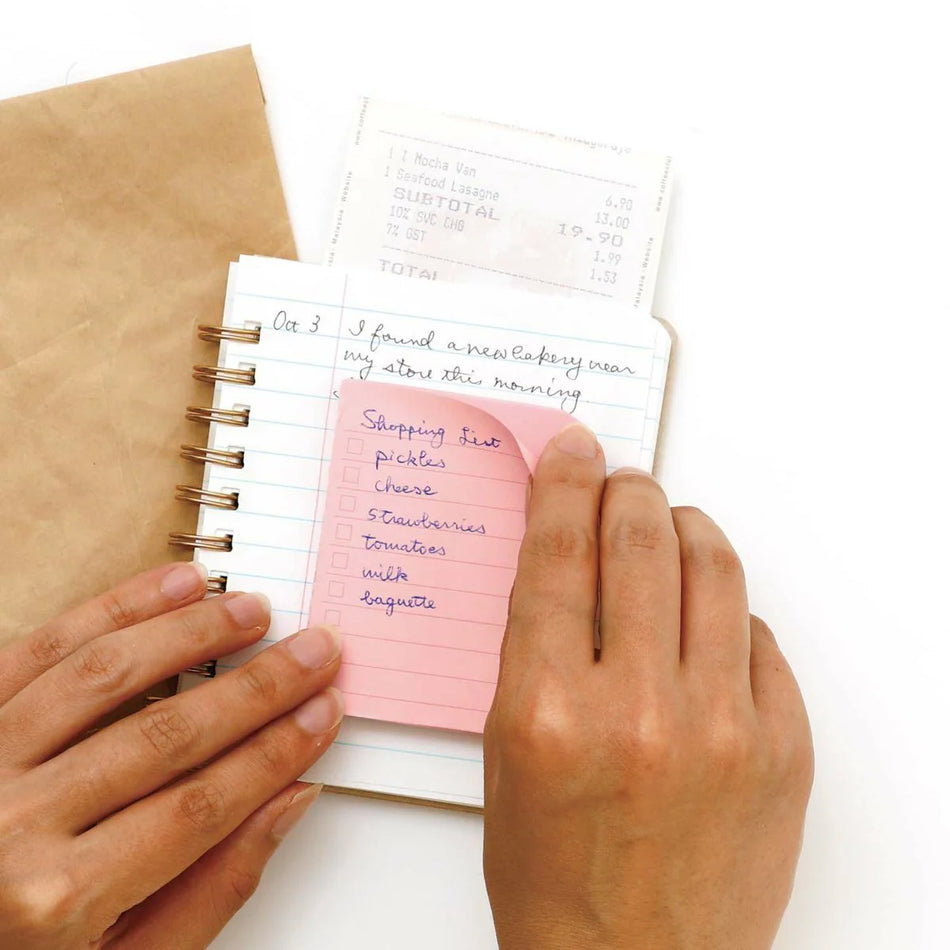 1 T Mocha Van 6.90
1 Seafood Lasagne 13.00
SUBTOTAL 19.90
10% SVC CHG 1.99
7% GST 1.53
TOTAL
Malaysia - Website
www.coffeecl
Malaysia - Website
www.coffeecl
Oct 3
I found a new bakery near
my store this morning
Shopping List
pickles
cheese
strawberries
tomatoes
milk
baguette